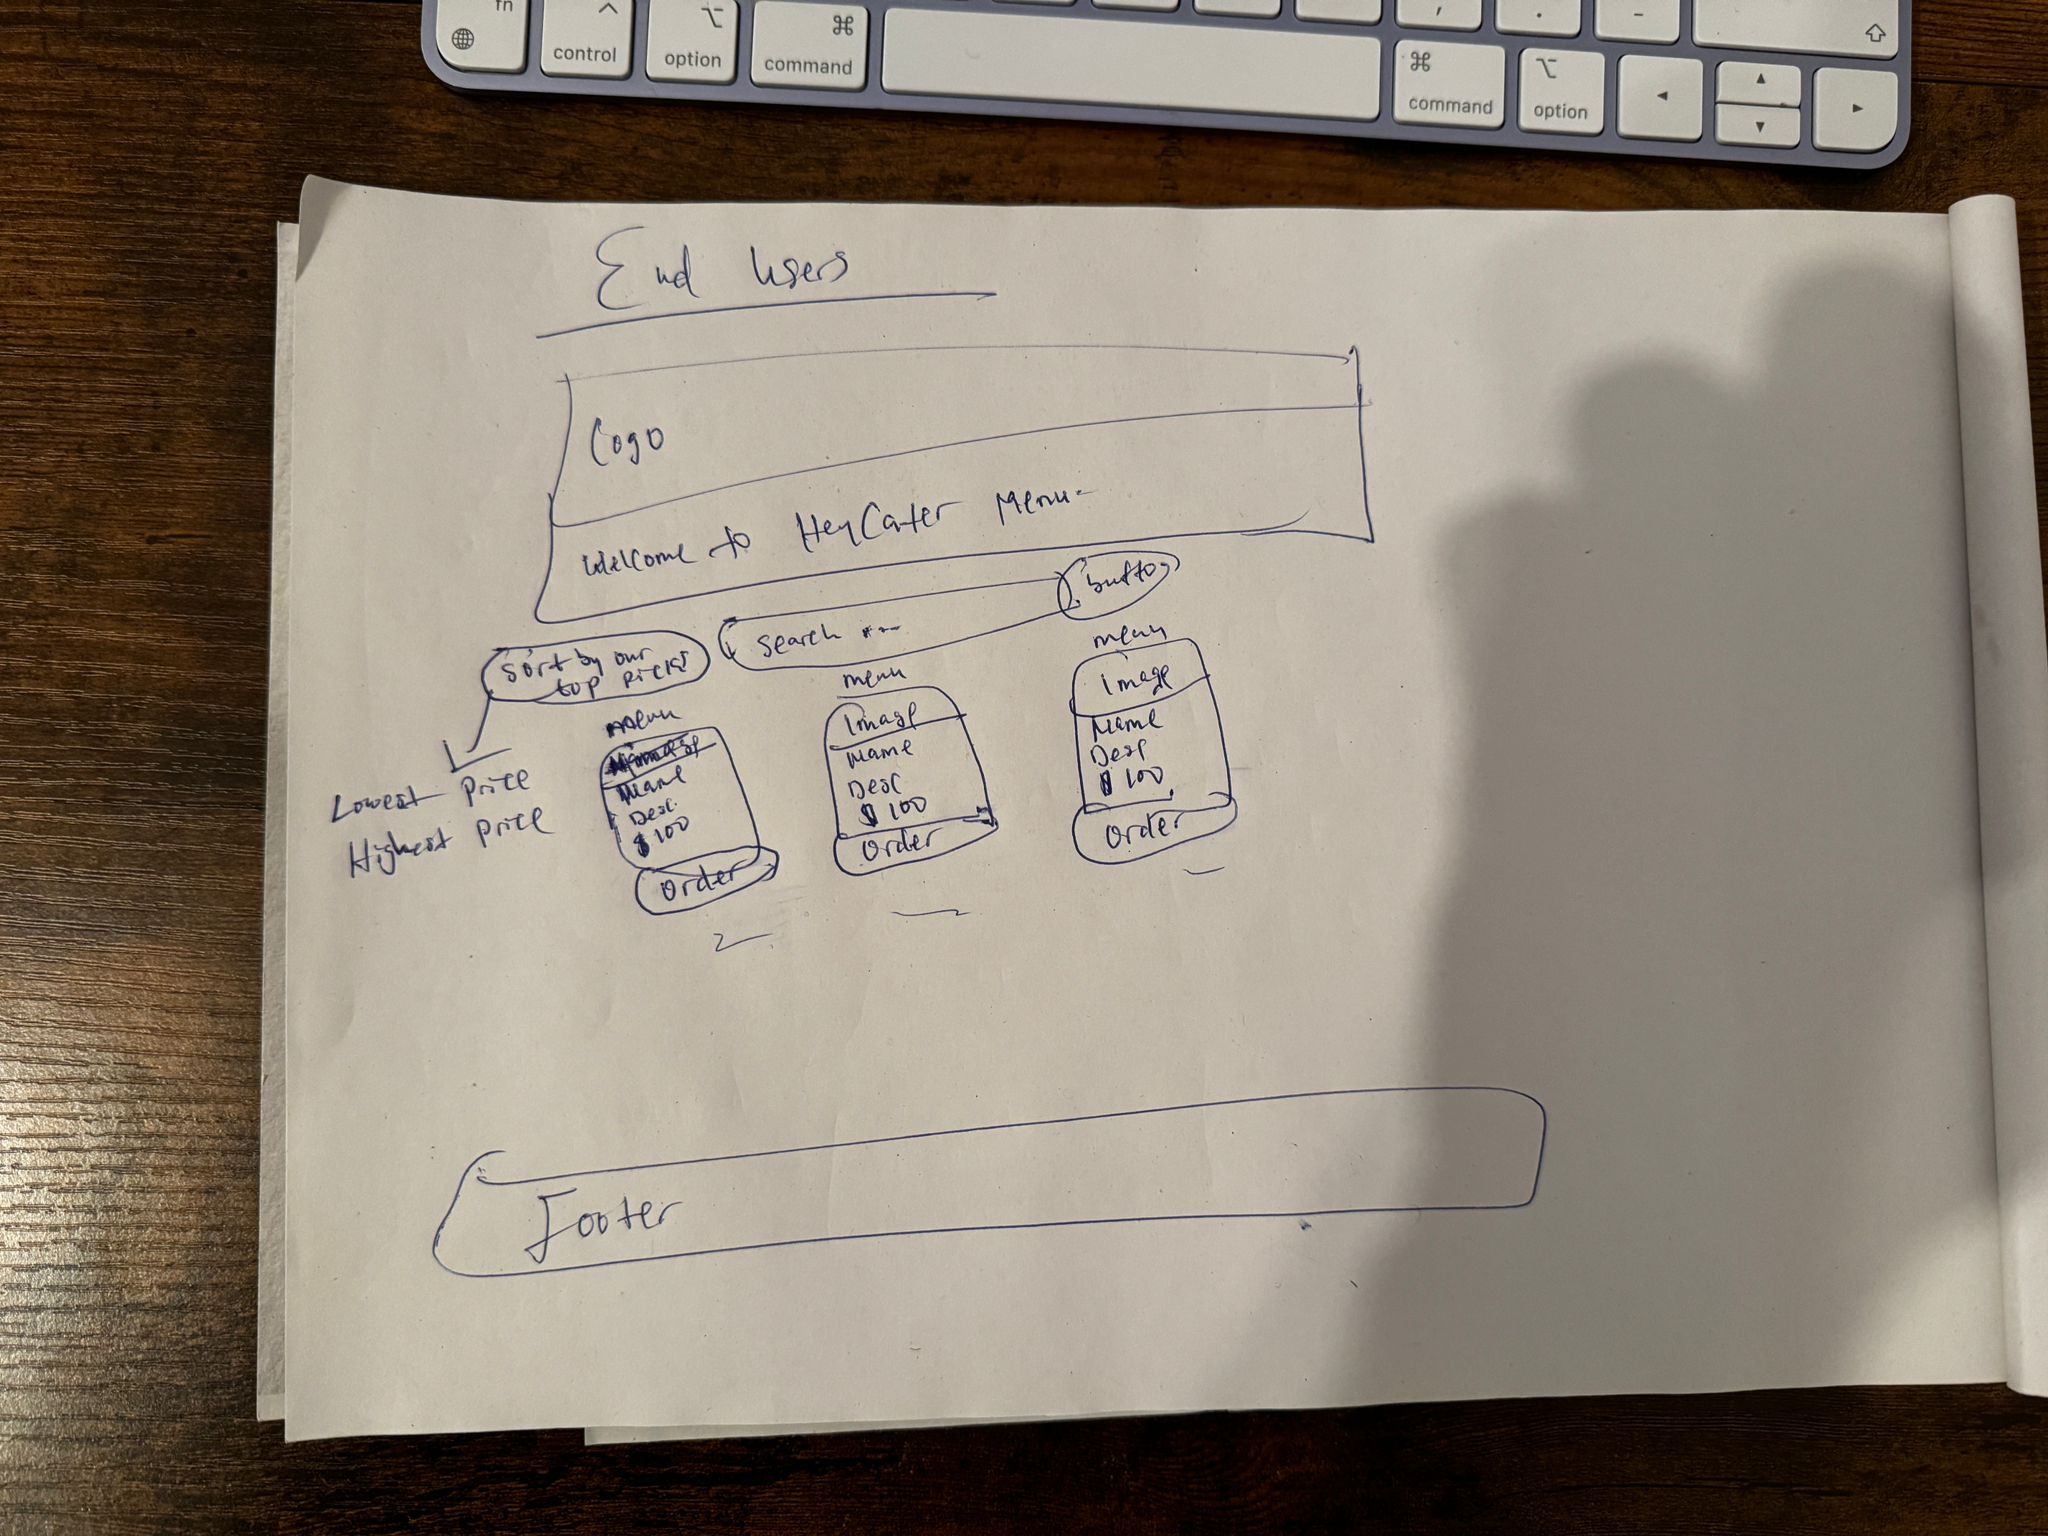 fn
control
option
command
command
option
End Users
Logo
Welcome to HeyCater Menu
button
Search ...
Sort by our
top picks
Lowest Price
Highest Price
menu
Name
Desc
$100
Order
menu
Image
Name
Desc
$100
Order
menu
image
Name
Desc
$100
Order
Footer